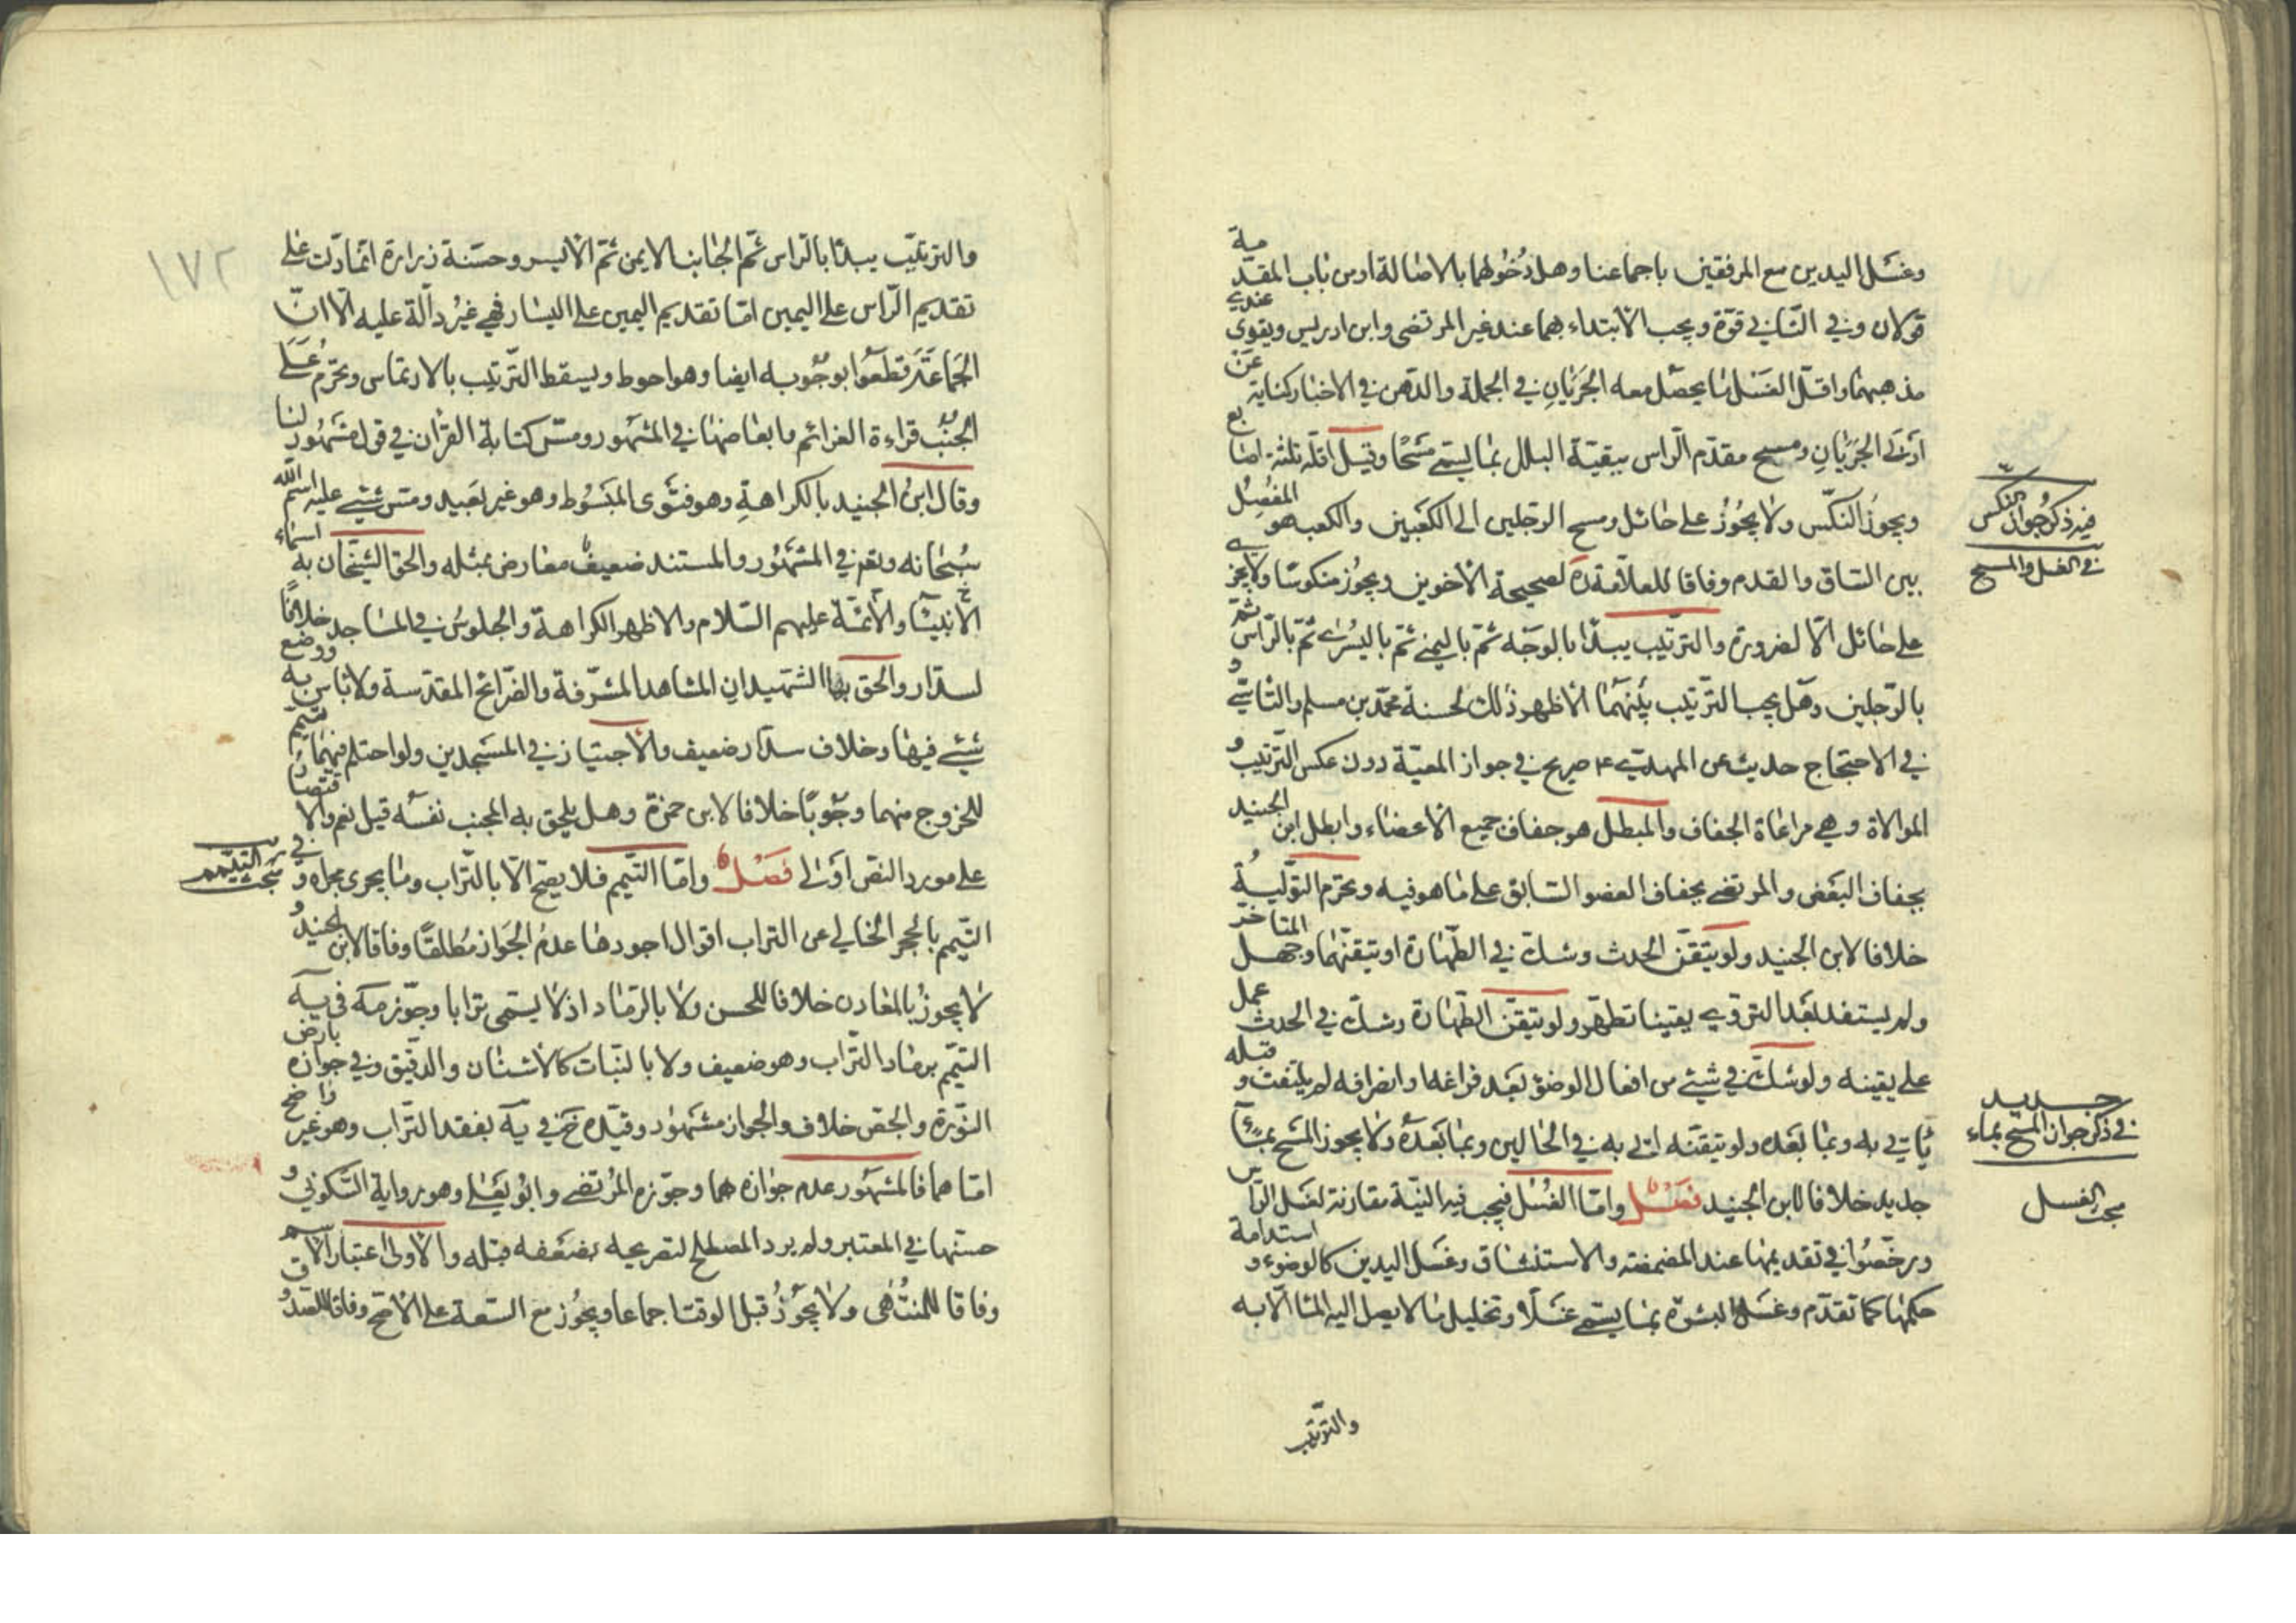 وغسل اليدين مع المرفقين باجماعنا وهل دخولهما بالاصالة او من باب المقدمية
قولان وفي الثاني قوة ويجب الابتداء بهما عند غير المرتضى وابن ادريس ويقوى عندي
مذهبهما واقل الغسل ما يحصل معه الجريان في الجملة والدهن في الاخبار كناية عن
ادنى الجريان ومسح مقدم الراس ببقية البلل بما يسمى مسحا وقيل اقله ثلثة اصابع
ويجوز النكس ولا يجوز على حائل ومسح الرجلين الى الكعبين والكعب هو المفصل
بين الساق والقدم وفاقا للعلامة ره لصحيحة الاخوين ويجوز منكوسا ولا يجزي
على حائل الا لضرورة والترتيب يبدأ بالوجه ثم باليمنى ثم باليسرى ثم بالراس ثم
بالرجلين وهل يجب الترتيب بينهما الاظهر ذلك لحسنة محمد بن مسلم والثاني و
في الاحتجاج حديث عن المهدي ع صريح في جواز المعية دون عكس الترتيب و
الموالاة وهي مراعاة الجفاف والمبطل هو جفاف جميع الاعضاء وابطل ابن الجنيد
بجفاف البعض والمرتضى بجفاف العضو السابق على ما هو فيه وتحرم التولية
خلافا لابن الجنيد ولو تيقن الحدث وشك في الطهارة او تيقنهما وجهل المتاخر
ولم يستفد بعد التروي يقينا تطهر ولو تيقن الطهارة وشك في الحدث عمل
على يقينه ولو شك في شيئ من افعال الوضوء بعد فراغه وانصرافه لم يلتفت وقبله
ياتي به وبما بعده ولو تيقنه اتى به في الحالين وبما بعده ولا يجوز المسح بماء
جديد خلافا لابن الجنيد فصل واما الغسل فيجب فيه النية مقارنة لغسل الراس
ورخصوا في تقديمها عند المضمضة والاستنشاق وغسل اليدين كالوضوء واستدامة
حكمها كما تقدم وغسل البشرة بما يسمى غسلا وتخليل ما لا يصل اليه الماء الا به
والترتيب
فيه ذكر جواز النكس
في الغسل والمسح
في ذكر جواز المسح بماء
جديد
مبحث الغسل
١٧٢
والترتيب يبدأ بالراس ثم الجانب الايمن ثم الايسر وحسنة زرارة انما دلت على
تقديم الراس على اليمين اما تقديم اليمين على اليسار فهي غير دالة عليه الا ان
الجماعة قطعوا بوجوبه ايضا وهو احوط ويسقط الترتيب بالارتماس وتحرم على
الجنب قراءة العزائم وابعاضها في المشهور ومس كتابة القران في قول مشهور لنا
وقال ابن الجنيد بالكراهة وهو فتوى المبسوط وهو غير بعيد ومس شيئ عليه اسم الله
سبحانه وتعز في المشهور والمستند ضعيف معارض بمثله والحق الشيخان به اسماء
الانبياء والائمة عليهم السلام والاظهر الكراهة والجلوس في المساجد خلافا
لسلار والحق بها الشهيدان المشاهد المشرفة والضرائح المقدسة ولا باس به ووضع
شيئ فيها وخلاف سلار ضعيف والاجتياز في المسجدين ولو احتلم فيهما تيمم
للخروج منهما وجوبا خلافا لابن حمزة وهل يلحق به المجنب نفسه قيل نعم والاقتصار
على مورد النص اولى فصل واما التيمم فلا يصح الا بالتراب وما يجرى مجراه وفي
التيمم بالحجر الخالي عن التراب اقوال اجودها عدم الجواز مطلقا وفاقا لابن الجنيد و
لا يجوز بالمعادن خلافا للحسن ولا بالرماد اذ لا يسمى ترابا وجوز مه في يه
التيمم برماد التراب وهو ضعيف ولا بالنبات كالاشنان والدقيق وفي جوازه بارض
النورة والجص خلاف والجواز مشهور وقيده خ في يه بفقد التراب وهو غير واضح
اما هما فالمشهور عدم جوازه بهما وجوزه المرتضى وابو يعلى وهو رواية السكوني و
حسنها في المعتبر ولم يرد المصطلح لتصريحه بضعفه قبله والاولى اعتبار الاسم
وفاقا للمنتهى ولا يجوز قبل الوقت اجماعا ويجوز مع السعة على الاصح وفاقا للصدوق
مبحث التيمم